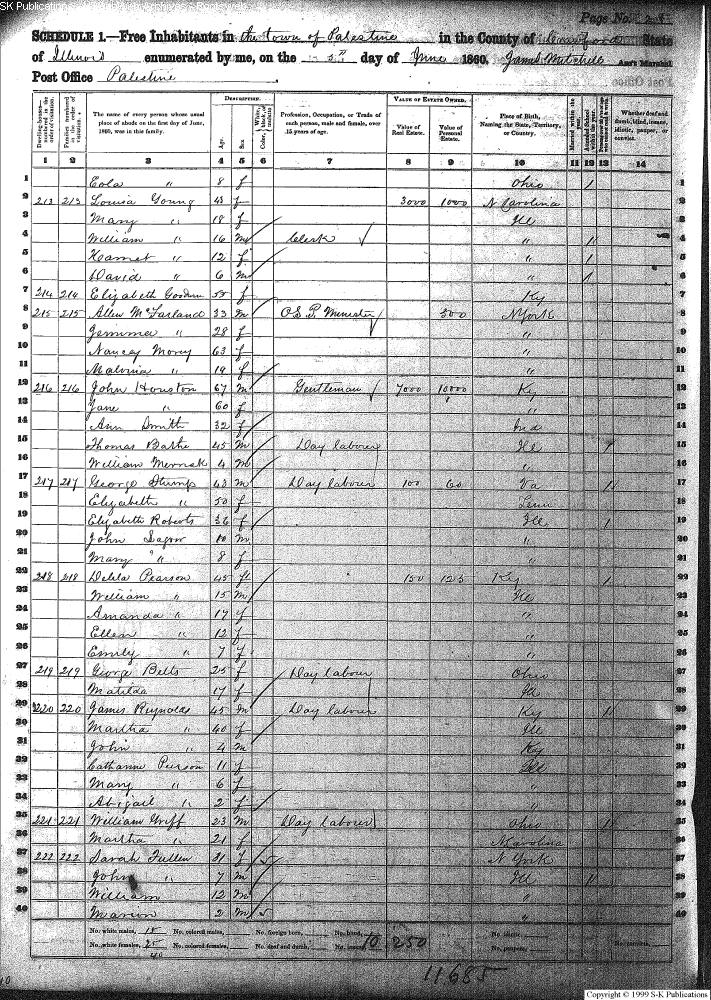 SK Publications
Page No. 28
SCHEDULE 1.—Free Inhabitants in the town of Palestine in the County of Crawford State
of Illinois enumerated by me, on the 5th day of June 1860. James Mitchell Ass't Marshal
Post Office Palestine
Dwelling-houses—numbered in the order of visitation. Families numbered in the order of visitation. The name of every person whose usual place of abode on the first day of June, 1860, was in this family. DESCRIPTION. Age. Sex. Color, White, black, or mulatto. Profession, Occupation, or Trade of each person, male and female, over 15 years of age. VALUE OF ESTATE OWNED. Value of Real Estate. Value of Personal Estate. Place of Birth, Naming the State, Territory, or Country. Married within the year. Attended School within the year. Whether deaf and dumb, blind, insane, idiotic, pauper, or convict.
1 2 3 4 5 6 7 8 9 10 11 12 13 14
1 Eola " 8 f Ohio 1 1
2 213 213 Louisa Young 43 f 3000 1000 N Carolina 2
3 Mary " 18 f Ill 3
4 William " 16 m Clerk " 1 4
5 " 12 f " 1 5
6 David " 6 m " 1 6
7 214 214 Elizabeth 55 f Ky 7
8 215 215 Allen McFarland 33 m O S P Minester 500 N York 8
9 Jemima " 28 f " 9
10 Nancy 63 f " 10
11 Malvina " 19 f " 11
12 216 216 John Houston 67 m Gentleman 7000 10000 Ky 12
13 Jane " 60 f " 13
14 Ann Smith 32 f Ind 14
15 Thomas 45 m Day labourer Ill 1 15
16 William 4 m " 16
17 217 217 George Stump 43 m Day labourer 100 60 Va 1 17
18 Elizabeth " 50 f Tenn 18
19 Elizabeth Roberts 36 f Ill 1 19
20 John 10 m " 20
21 Mary " 8 f " 21
22 218 218 Delila Pearson 45 f 150 125 Ky 1 22
23 William " 15 m Ill 23
24 Amanda " 17 f " 24
25 Ellen " 12 f " 25
26 Emily " 7 f " 26
27 219 219 George Belts 25 f Day labour Ohio 27
28 Matilda 17 f 28
29 220 220 James Reynolds 45 m Day labour Ky 1 29
30 Martha " 40 f Ill 30
31 John " 4 m Ky 31
32 Catharine Pearson 11 f Ill 32
33 Mary " 6 f " 33
34 Abigail " 2 f " 34
35 221 221 William Griff 23 m Day labourer Ohio 1 35
36 Martha " 21 f N Carolina 36
37 222 222 Sarah Fuller 31 f N York 37
38 John " 7 m Ill 1 38
39 William 12 m " 39
40 Marion 2 m " 40
No. white males, 15 No. colored males, No. foreign born, No. blind, No. idiotic,
No. white females, 25 No. colored females, No. deaf and dumb, No. insane, 10,250 No. paupers, No. convicts,
40
11685
Copyright © 1999 S-K Publications